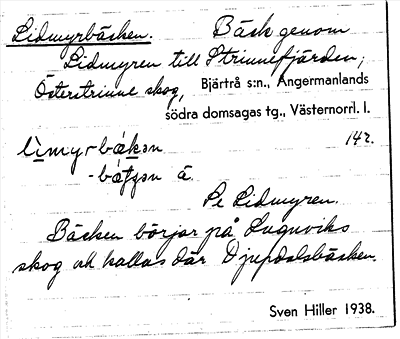 Lidmyrbäcken. Bäck genom
Lidmyren till Strinnefjärden;
Österstrinne skog, Bjärtrå s:n., Ångermanlands
södra domsagas tg., Västernorrl. l.
142.
li̱myr-bäḱən
-bä́tʃən ä.
Se Lidmyren.
Bäcken börjar på Lugnviks
skog och kallas där Djupdalsbäcken.
Sven Hiller 1938.